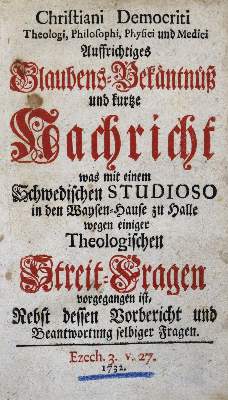 Christiani Democriti
Theologi, Philosophi, Physici und Medici
Auffrichtiges
Glaubens-Bekäntnüß
und kurtze
Nachricht
was mit einem
Schwedischen STUDIOSO
in den Waysen-Hause zu Halle
wegen einiger
Theologischen
Streit-Fragen
vorgegangen ist,
Nebst dessen Vorbericht und
Beantwortung selbiger Fragen.
Ezech. 3. v. 27.
1732.